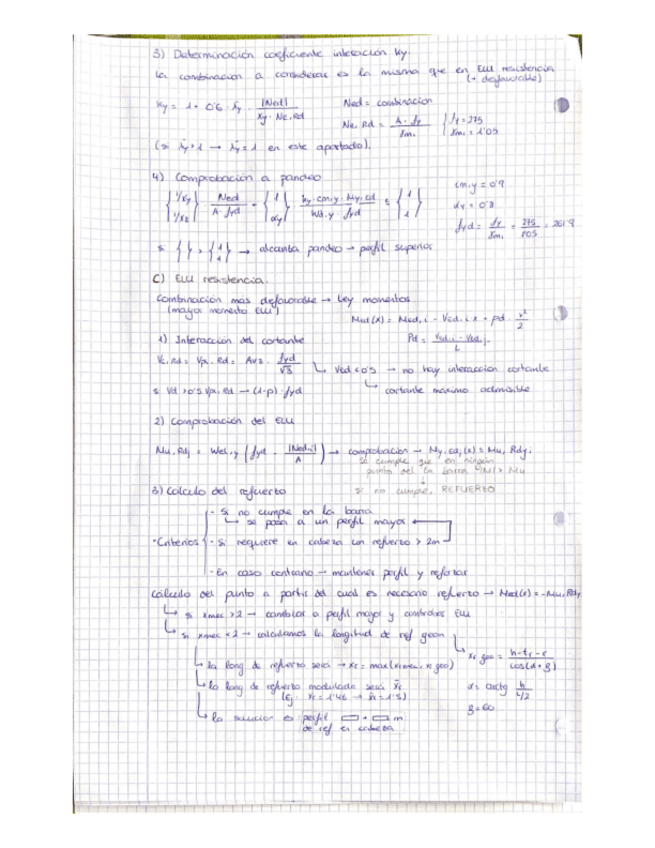 3) Determinación coeficiente interacción Ky.
La combinación a considerar es la misma que en ELU resistencia
(+ desfavorable)
Ky = 1 + 0'6 · λ̄y · |Ned| / (χy · Nc,Rd)
Ned = combinación
Nc,Rd = A · fy / γM1 { fy = 275
γM1 = 1'05
(si λ̄y > 1 → λ̄y = 1 en este apartado).
4) Comprobación a pandeo
{1/χy
1/χz} Ned / (A · fyd) + {1
αy} ky · cm,y · My,Ed / (Wel,y · fyd) ≤ {1
1}
cm,y = 0'9
αy = 0'8
fyd = fy / γM1 = 275 / 1'05 = 261'9
si { } > {1
1} → alcanza pandeo → perfil superior
C) ELU resistencia.
Combinación más desfavorable → Ley momentos
(mayor momento ELU)
Med(x) = Med,i - Ved,i x + pd · x²/2
Pd = (Ved,i - Ved,j) / L
1) Interacción del cortante
Vc,Rd = Vpl,Rd = Avz · fyd / √3
↳ Ved < 0'5 → no hay interacción cortante
↳ cortante máximo admisible
si Vd > 0'5 Vpl,Rd → (1-ρ) · fyd
2) Comprobación del ELU
Mu,Rdy = Wel,y ( fyd - |Ned,i| / A ) → comprobación → My,Ed,(x) = Mu,Rdy.
se cumple que en ningún
punto de la barra |M| > Mu
↓
si no cumple, REFUERZO
3) Cálculo del refuerzo
· Criterios
- Si no cumple en la barra
↳ se pasa a un perfil mayor ←
- Si requiere en cabeza un refuerzo > 2m
- En caso contrario → mantener perfil y reforzar
Cálculo del punto a partir del cual es necesario refuerzo → Med(x) = -Mu,Rdy
↳ si xmec > 2 → cambiar a perfil mayor y controlar ELU
↳ si xmec < 2 → calculamos la longitud de ref geom
↳ xr geo = (h - tf - r) / cos(α + β)
↳ la long de refuerzo será → xr = max(xrmec, xr geo)
α = arctg h / (L/2)
↳ la long de refuerzo modulada será x̄r
(Ej. xr = 1'46 → x̄r = 1'5)
β = 60
↳ la solución es perfil ▭ + ▭ m
de ref en cabeza